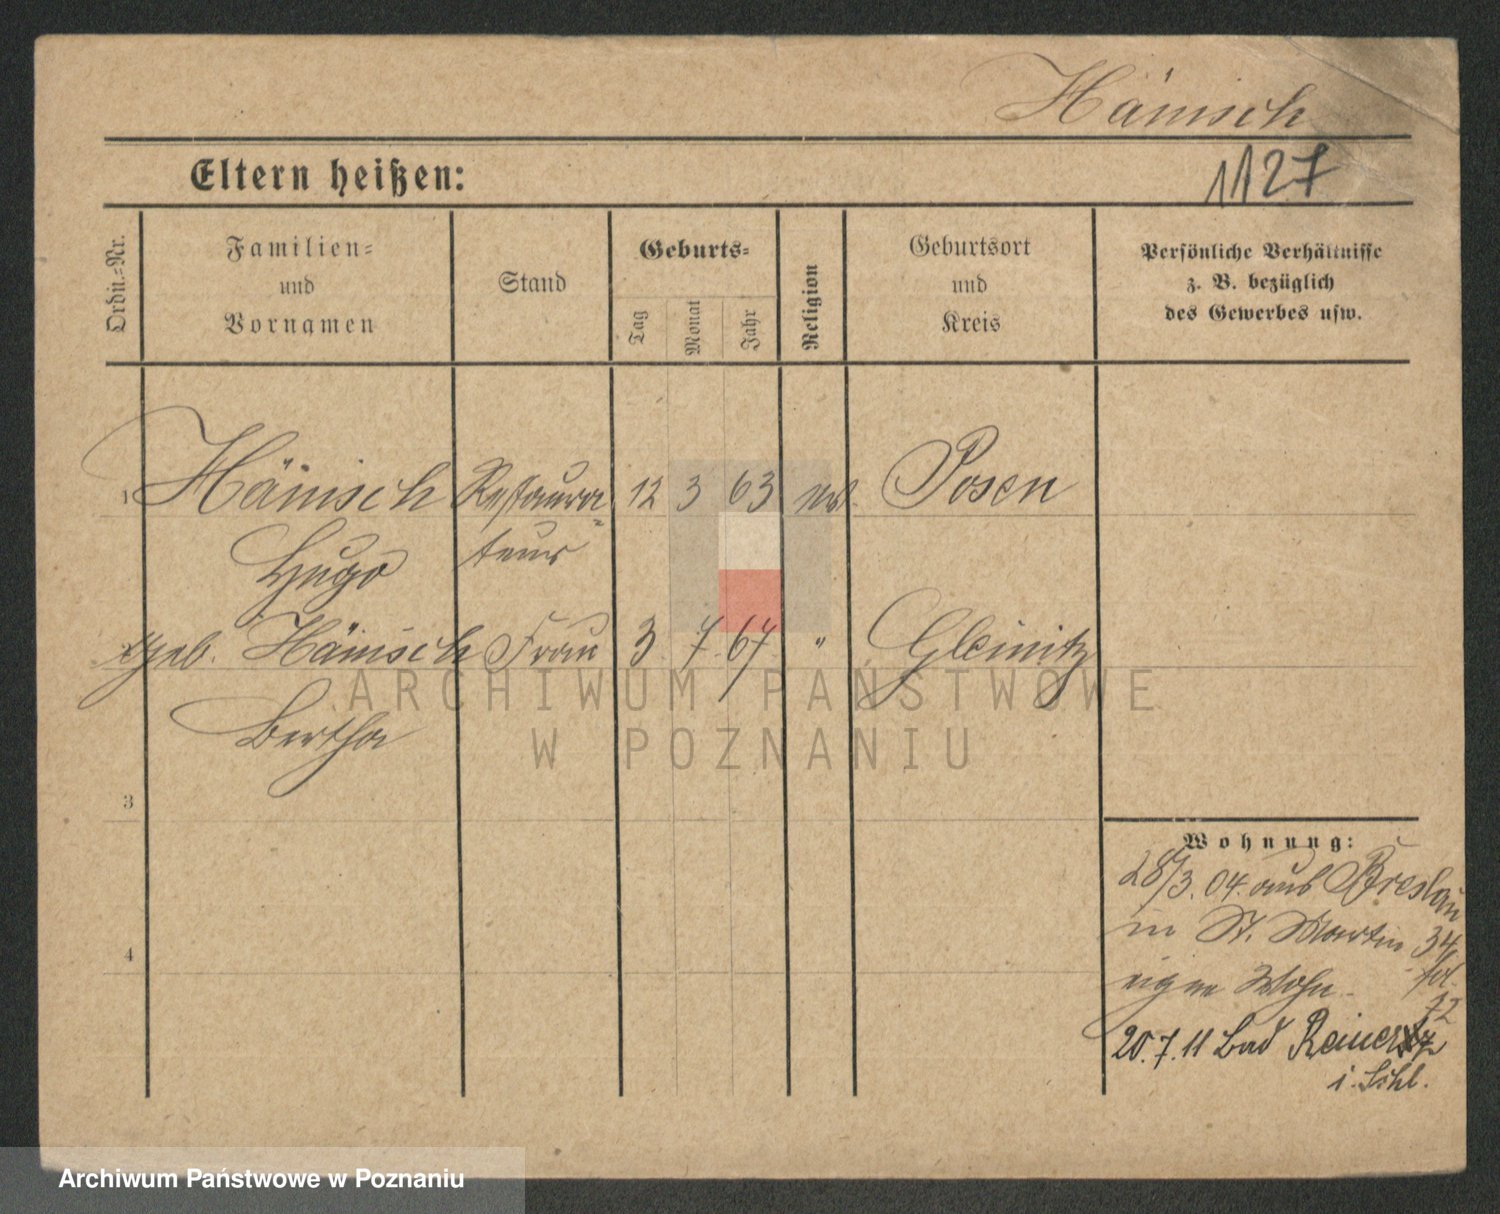 Hänisch
Eltern heißen:
1127
Ordn.-Nr.
Familien-
und
Vornamen
Stand
Geburts-
Tag
Monat
Jahr
Religion
Geburtsort
und
Kreis
Persönliche Verhältnisse
z. B. bezüglich
des Gewerbes usw.
1 Hänisch Restaura- 12 3 63 Posen
Hugo teur
2 geb. Hänisch Frau 3. 7. 67 " Gleinitz
Bertha
3
4
Wohnung:
28/3. 04. aus Breslau
in St. Martin 34
eigne Wohn.
72
20.7.11 Bad Reinertz
i. Schl.
ARCHIWUM PAŃSTWOWE
W POZNANIU
Archiwum Państwowe w Poznaniu